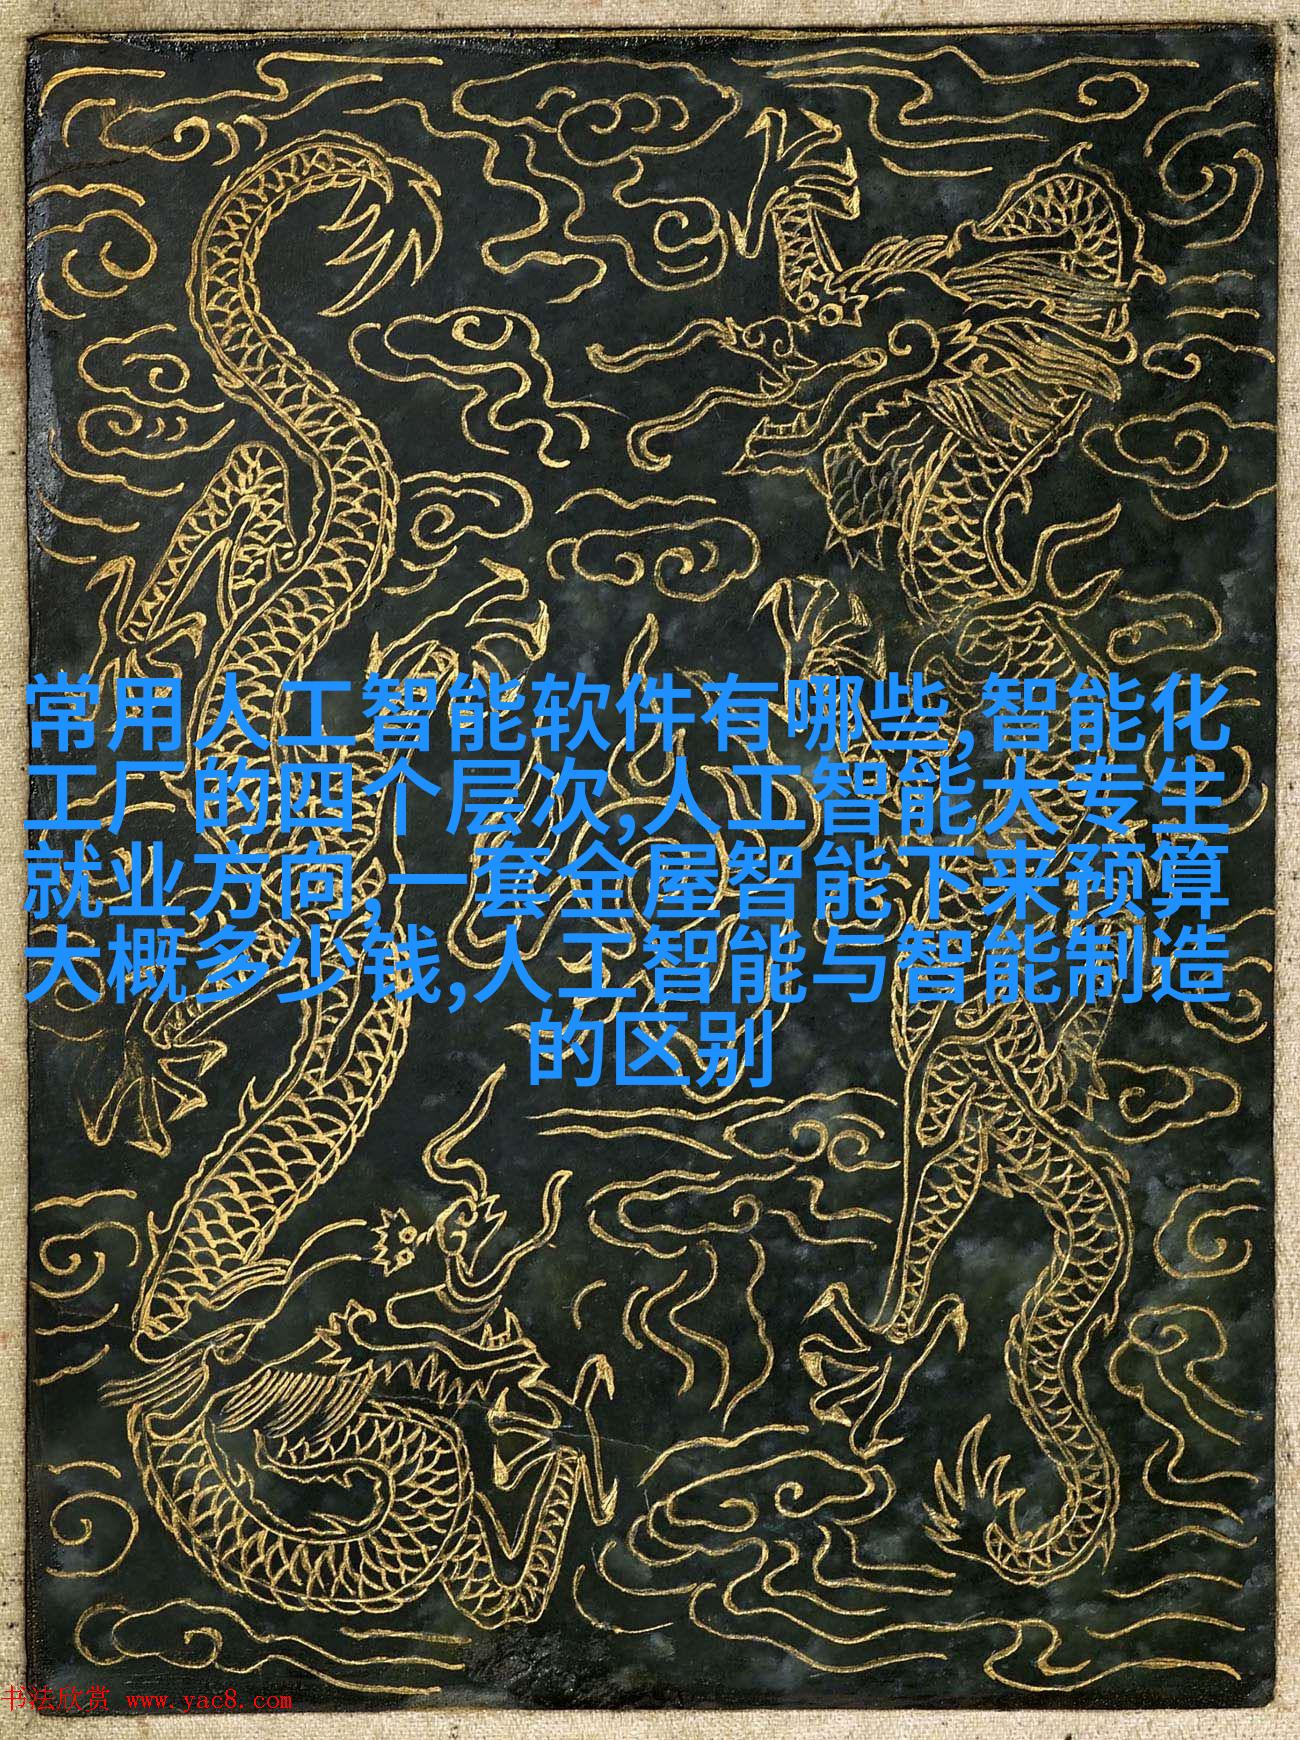 常用人工智能软件有哪些,智能化
工厂的四个层次,人工智能大专生
就业方向,一套全屋智能下来预算
大概多少钱,人工智能与智能制造
的区别
书法欣赏 www.yac8.com